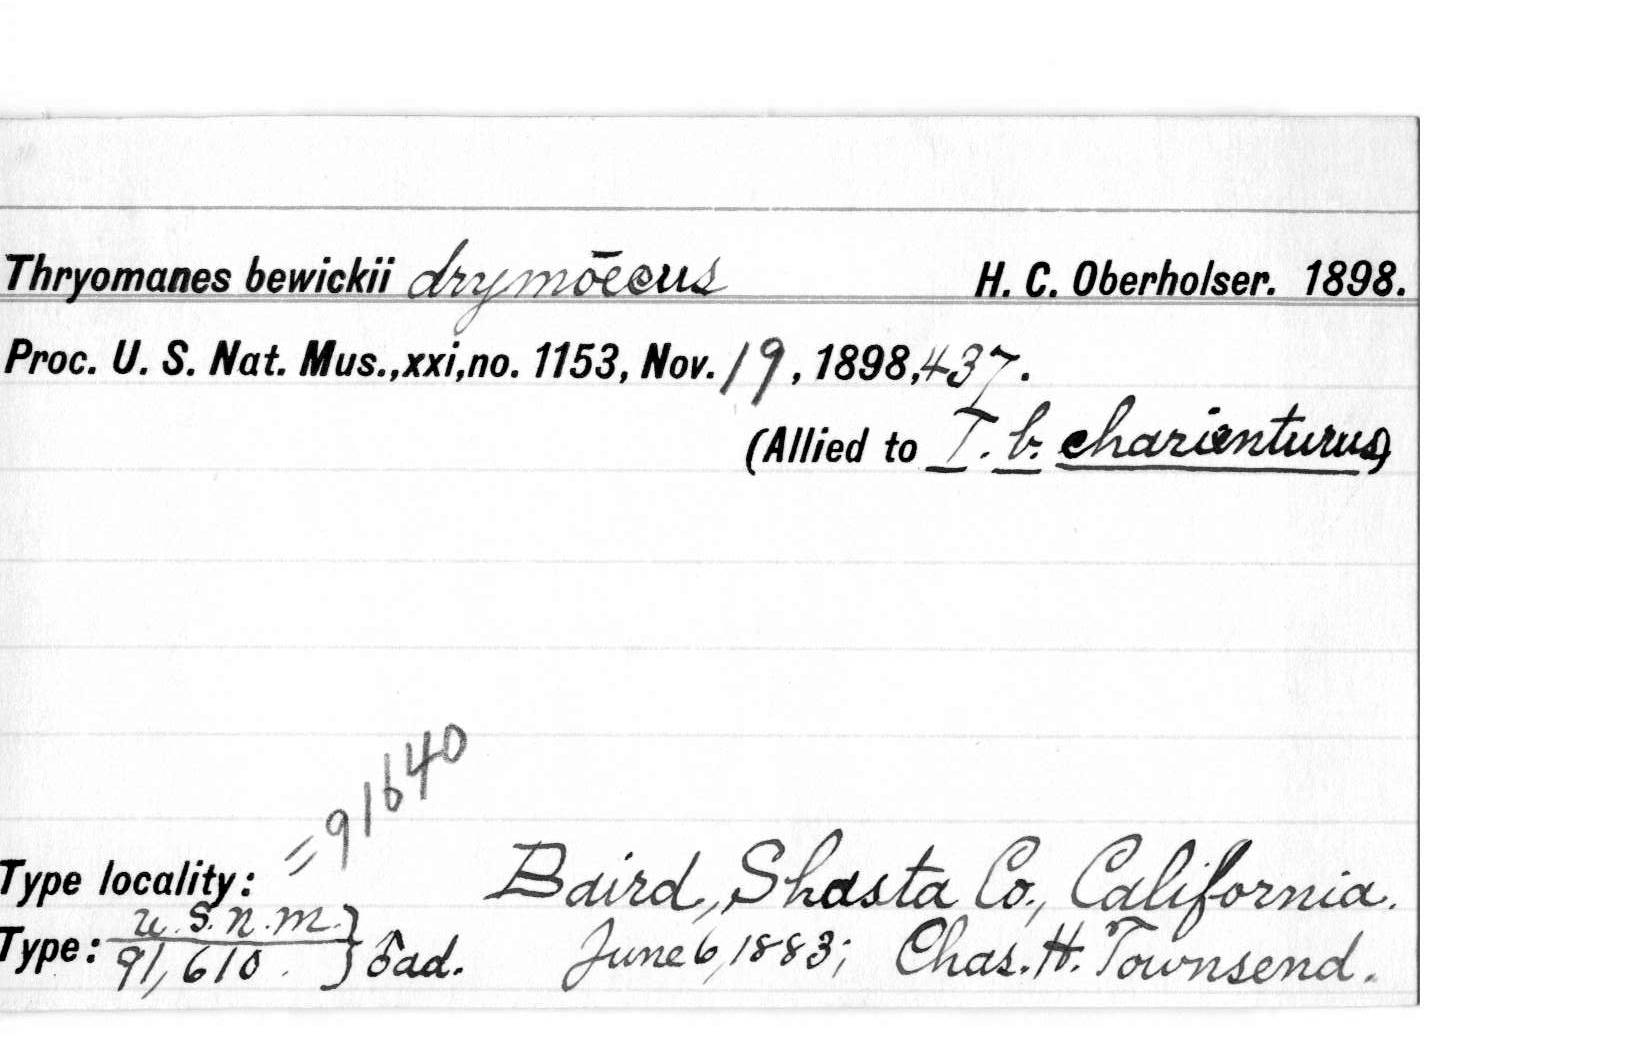 Thryomanes bewickii drymōecus H. C. Oberholser. 1898.
Proc. U. S. Nat. Mus., xxi, no. 1153, Nov. 19, 1898, 437.
(Allied to T. b. charienturus)
=91640
Type locality: Baird, Shasta Co., California.
Type: U.S.N.M. 91,610. } ♂ad. June 6, 1883; Chas. H. Townsend.